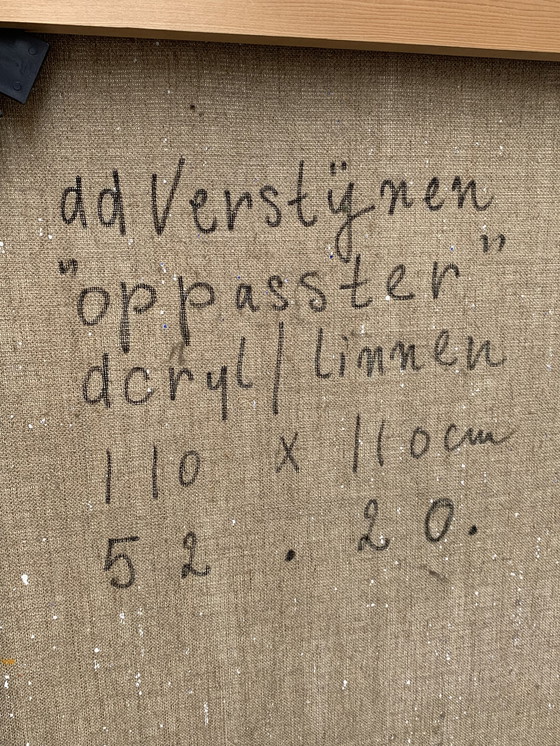 ad Verstÿnen
"oppasster"
acryl/linnen
110 x 110cm
52 . 20.